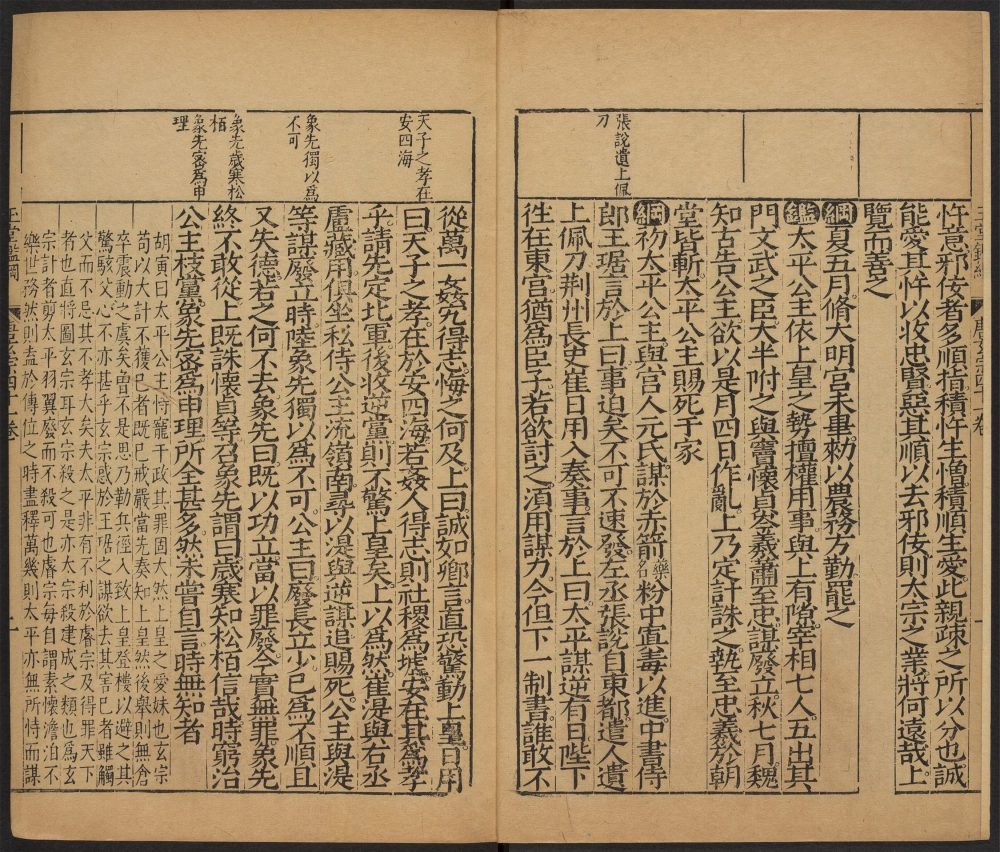 忤意邪佞者多順指積忤生憎積順生愛此親疎之所以分也誠
能愛其忤以收忠賢惡其順以去邪佞則太宗之業將何遠哉上
覽而善之
綱夏五月脩大明宮未畢勑以農務方勤罷之
鑑太平公主依上皇之勢擅權用事與上有隙宰相七人五出其
門文武之臣大半附之與竇懷貞岑羲蕭至忠謀廢立秋七月魏
知古告公主欲以是月四日作亂上乃定計誅之執至忠羲於朝
堂皆斬太平公主賜死于家
張說遺上佩
刀
綱初太平公主與宮人元氏謀於赤箭藥名粉中寘毒以進中書侍
郎王琚言於上曰事迫矣不可不速發左丞張說自東都遣人遺
上佩刀荆州長史崔日用入奏事言於上曰太平謀逆有日陛下
徃在東宮猶爲臣子若欲討之湏用謀力今但下一制書誰敢不
從萬一姦宄得志悔之何及上曰誠如卿言直恐驚動上皇日用
天子之孝在
安四海
曰天子之孝在於安四海若姦人得志則社稷爲墟安在其爲孝
乎請先定北軍後收逆黨則不驚上皇矣上以爲然崔湜與右丞
盧藏用俱坐私侍公主流嶺南尋以湜與逆謀追賜死公主與湜
象先獨以爲
不可
等謀廢立時陸象先獨以爲不可公主曰廢長立少已爲不順且
又失德若之何不去象先曰既以功立當以罪廢今實無罪象先
象先歲寒松
栢
終不敢從上既誅懷貞等召象先謂曰歲寒知松柏信哉時窮治
象先密爲申
理
公主枝黨象先密爲申理所全甚多然未嘗自言時無知者
胡寅曰太平公主恃寵干政其罪固大然上皇之愛妹也玄宗
苟以大計不獲已者既已戒嚴當先奏知上皇然後舉則無倉
卒震動之虞矣曾不是思乃勒兵徑入致上皇登樓以避之其
驚駭父心不亦甚乎玄宗惑於王琚之謀欲去其害已者雖觸
父而不忌其不孝大矣夫太平非有不利於睿宗及得罪天下
者也直將圖玄宗耳玄宗殺之是亦太宗殺建成之類也爲玄
宗計者剪太平羽翼廢而不殺可也睿宗每自謂素懷澹泊不
樂世務然則盍於傳位之時盡釋萬幾則太平亦無所恃而謀